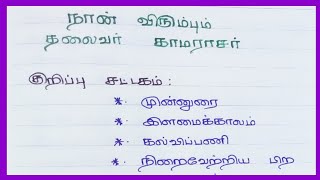 நான் விரும்பும்
தலைவர் காமராசர்
குறிப்பு சட்டகம் :
* முன்னுரை
* இளமைக்காலம்
* கல்விப்பணி
* நிறைவேற்றிய பிற